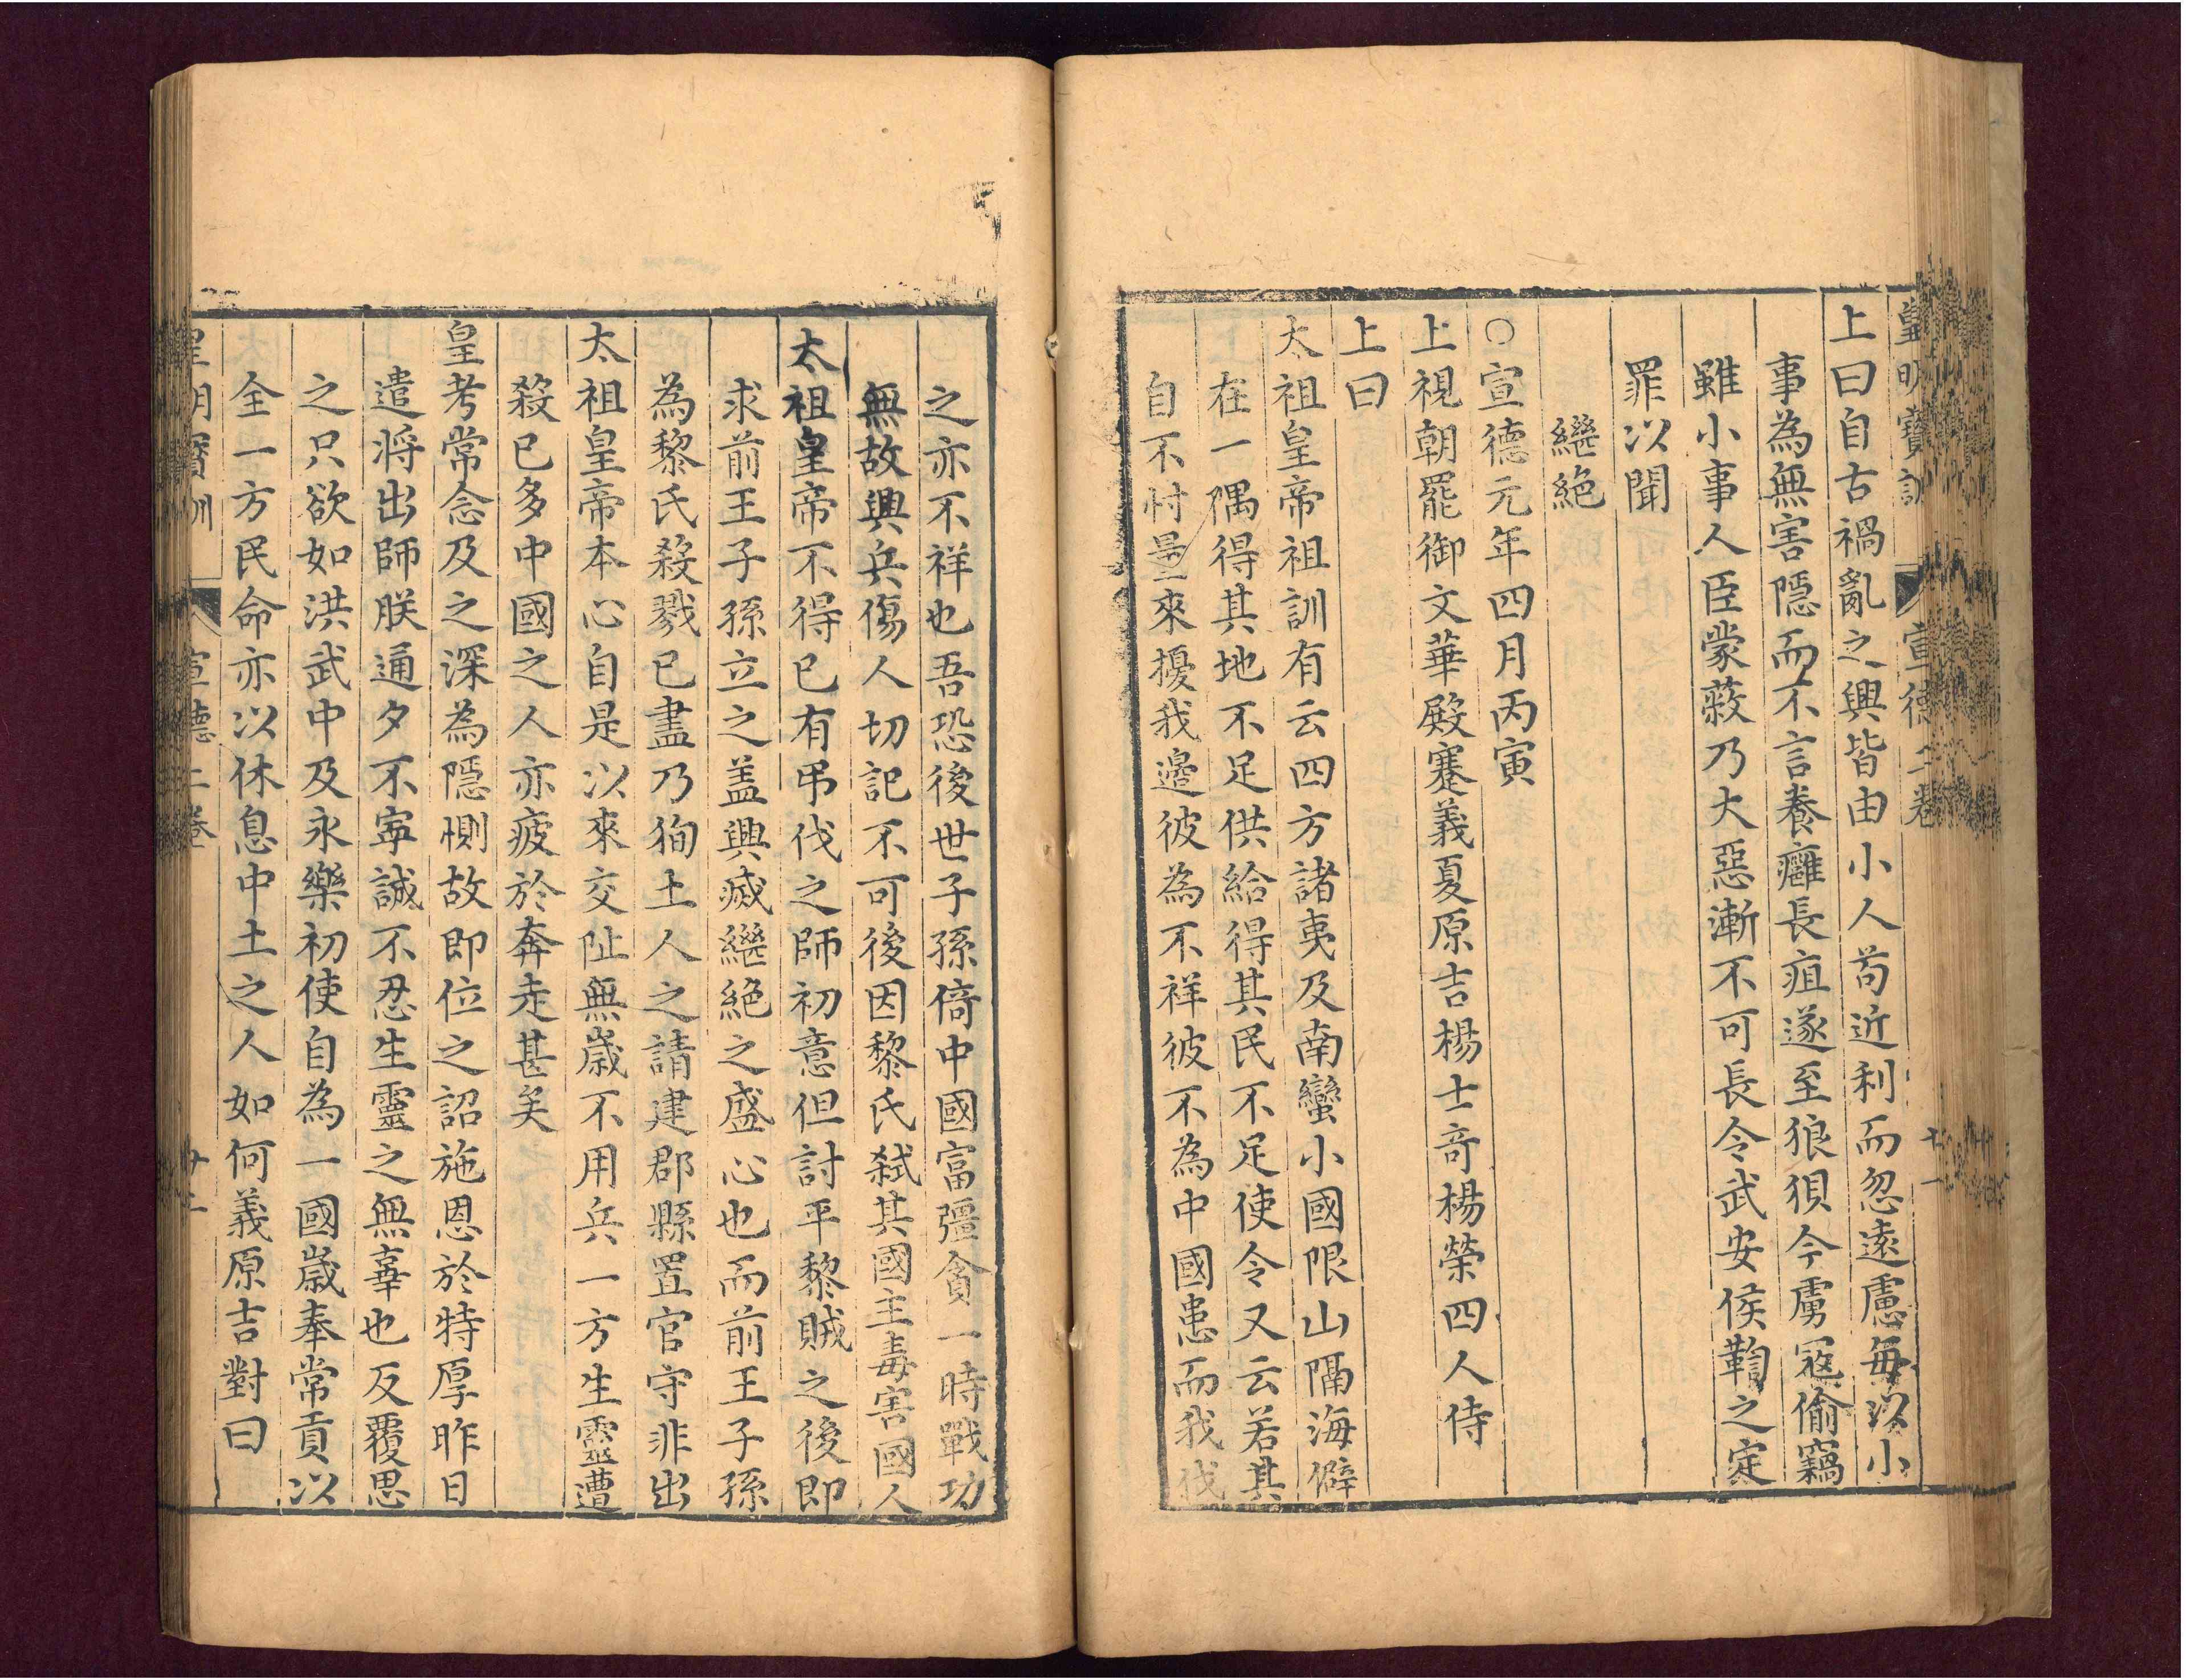 皇明寶訓 宣德二卷 十一
上曰自古禍亂之興皆由小人茍近利而忽遠慮每以小
事為無害隱而不言養癰長疽遂至狼狽今虜寇偷竊
雖小事人臣蒙蔽乃大惡漸不可長令武安侯鞫之定
罪以聞
繼絕
○宣德元年四月丙寅
上視朝罷御文華殿蹇義夏原吉楊士奇楊榮四人侍
上曰
太祖皇帝祖訓有云四方諸夷及南蠻小國限山隔海僻
在一隅得其地不足供給得其民不足使令又云若其
自不忖量來擾我邉彼為不祥彼不為中國患而我伐
之亦不祥也吾恐後世子孫倚中國富彊貪一時戰功
無故興兵傷人切記不可後因黎氏弒其國主毒害國人
太祖皇帝不得已有弔伐之師初意但討平黎賊之後即
求前王子孫立之盖興滅繼絕之盛心也而前王子孫
為黎氏殺戮已盡乃狥土人之請建郡縣置官守非出
太祖皇帝本心自是以來交阯無歲不用兵一方生靈遭
殺已多中國之人亦疲於奔走甚矣
皇考常念及之深為隱惻故即位之詔施恩於特厚昨日
遣将出師朕通夕不寧誠不忍生靈之無辜也反覆思
之只欲如洪武中及永樂初使自為一國歲奉常貢以
全一方民命亦以休息中土之人如何義原吉對曰
皇明寶訓 宣德二卷 十二